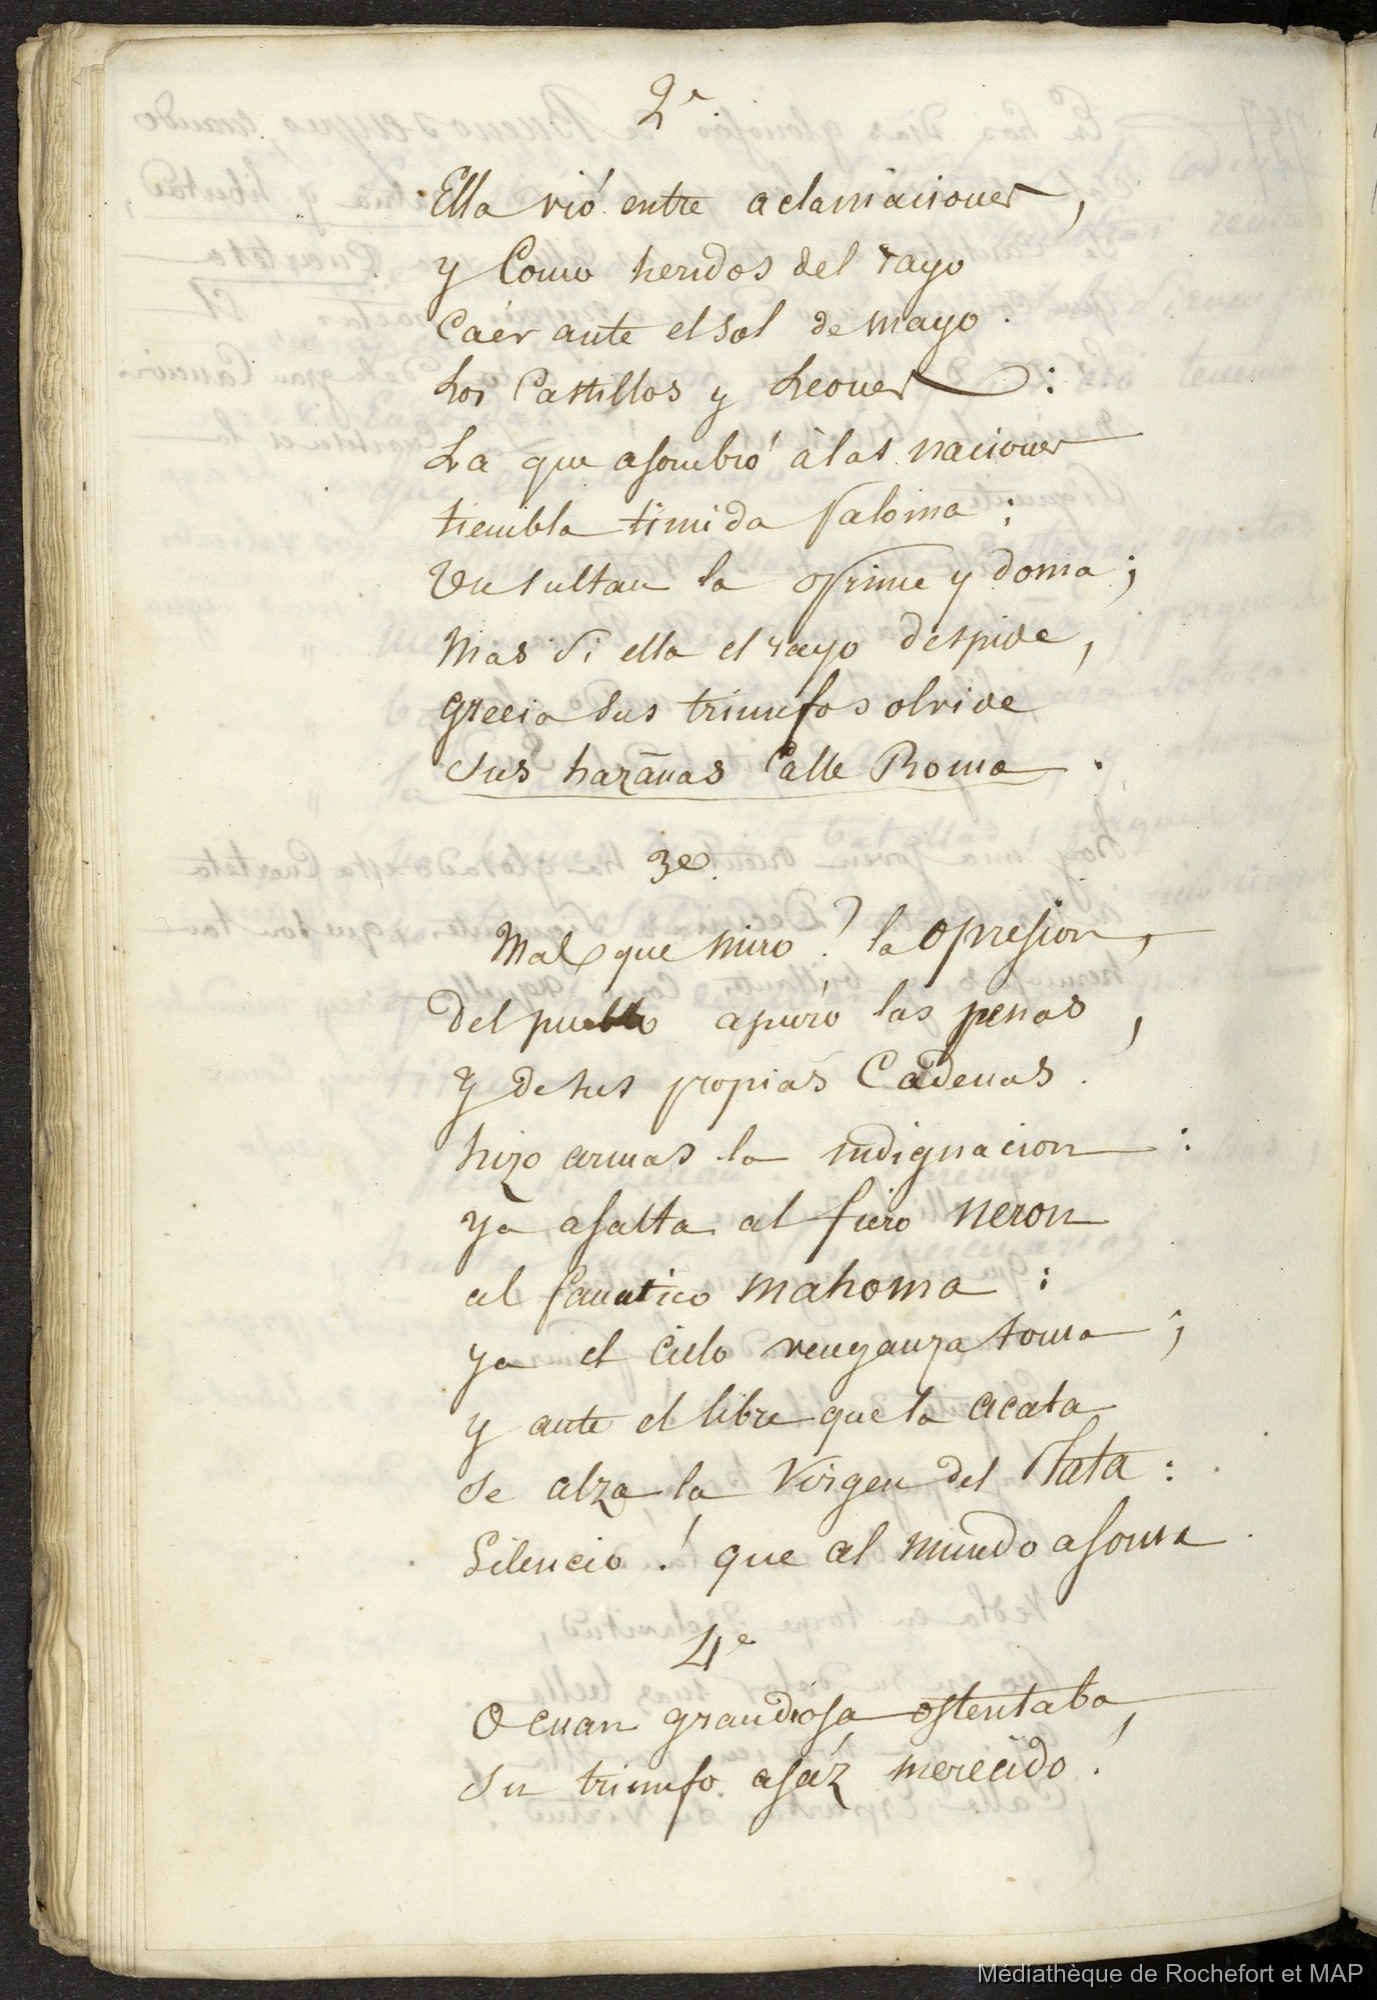 2ª
Ella vió entre aclamaciones,
y Como heridos del rayo
Caér ante el sol de mayo.
Los Castillos y Leones:
La que asombró à las naciones
tiembla timida paloma;
Un sultan la oprime y doma;
Mas Si ella el rayo despide,
Grecia sus triunfos olvide
Sus hazañas Calle Roma.
3ª
Mas que miro? la opresion,
del pueblo apuró las penas,
y de sus propias Cadenas.
hizo armas la indignacion:
ya asalta al fiero neron
al fanatico mahoma:
ya el cielo venganza toma;
y ante el libre que la acata
se alza la Virgen del Plata:
Silencio! que al mundo asoma.
4ª
O cuan grandiosa ostentaba
su triunfo asáz merecido!
Médiathèque de Rochefort et MAP